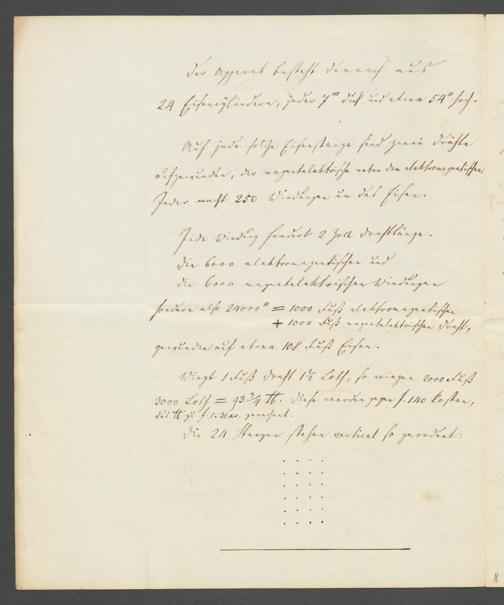 Der Apparat besteht demnach aus
24 Eisencylindern, jeder 7''' dick und etwa 54" hoch.
Auf jede solche Eisenstange sind zwei Drähte
aufgewunden, der magnetelektrische neben dem elektromagnetischen.
Jeder macht 250 Windungen um das Eisen.
Jede Windung fordert 2 Zoll Drahtlänge.
Die 6000 elektromagnetischen und
die 6000 magnetelektrischen Windungen
fordern also 24000" = 1000 Fuß elektromagnetischen
+ 1000 Fuß magnetelektrischen Draht,
gewunden auf etwa 108 Fuß Eisen.
Wiegt 1 Fuß Draht 1½ Loth, so wiegen 2000 Fuß
3000 Loth = 93¾ ℔. Diese werden f. 140 kosten,
das ℔ zu f. 1.30 kr. gerechnet.
Die 24 Stangen stehen vertical so geordnet:
8